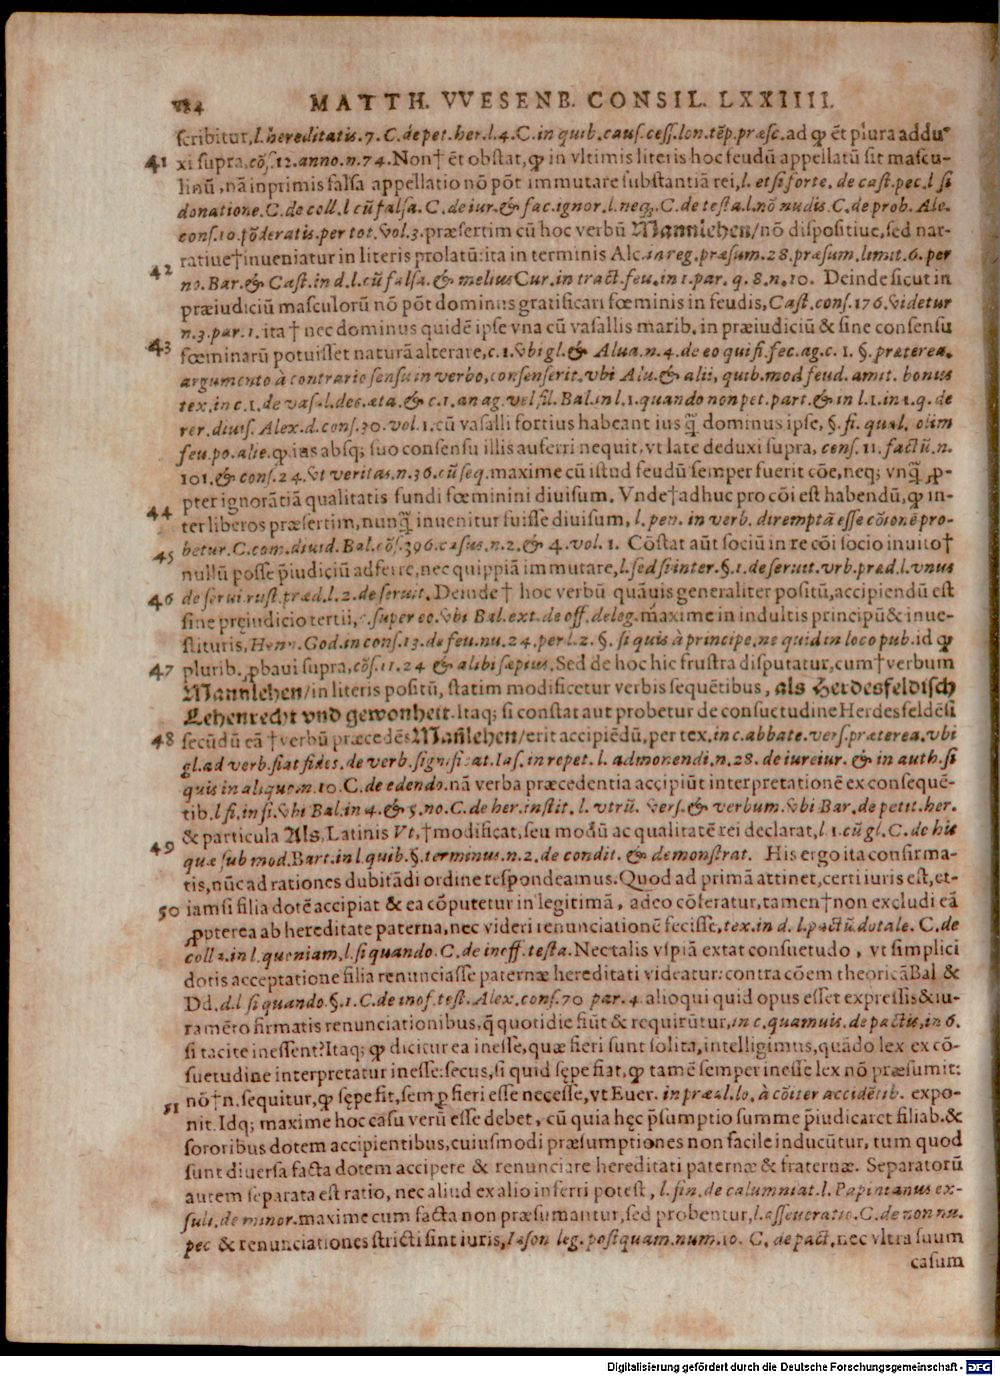 184 MATTH. VVESENB. CONSIL. LXXIIII.
scribitur, l. hereditatis. 7. C. de pet. her. l. 4. C. in quib. caus. cess. lon. tēp. præsc. ad qꝫ ēt plura addu-
41 xi supra, cōs. 12. anno. n. 74. Non† ēt obstat, qꝫ in vltimis literis hoc feudū appellatū sit mascu-
linū, nā inprimis falsa appellatio nō pōt immutare substantiā rei, l. et si forte. de cast. pec. l si
donatione. C. de coll. l cū falsa. C. de iur. & fac. ignor. l. neq;. C. de testa. l. nō nudis. C. de prob. Ale.
cons. 10. pōderatis. per tot. vol. 3. præsertim cū hoc verbū Mannlehen/ nō dispositiue, sed nar-
42 ratiue† inueniatur in literis prolatū: ita in terminis Alc. in reg. præsum. 28. præsum. limit. 6. per
no. Bar. & Cast. in d. l. cū falsa. & melius Cur. in tract. feu. in 1. par. q. 8. n. 10. Deinde sicut in
præiudiciū masculorū nō pōt dominus gratificari fœminis in feudis, Cast. cons. 176. videtur
43 n. 3. par. 1. ita † nec dominus quidē ipse vna cū vasallis marib. in præiudiciū & sine consensu
fœminarū potuisset naturā alterare, c. 1. vbi gl. & Alua. n. 4. de eo qui fi. fec. ag. c. 1. §. præterea.
argumento à contrario sensu in verbo, consenserit. vbi Alu. & alii, quib. mod feud. amit. bonus
tex. in c. 1. de vasal. dec. æta. & c. 1. an ag. vel fil. Bal. in l. 1. quando non pet. part. & in l. 1. in 1. q. de
rer. diuis. Alex. d. cons. 30. vol. 1. cū vasalli fortius habeant ius q̄ dominus ipse, §. fi. qual. olim
feu. po. alie. qꝫ ias absq; suo consensu illis auferri nequit, vt late deduxi supra, cons. 11. factū. n.
101. & cons. 24. vt veritas. n. 36. cū seq. maxime cū istud feudū semper fuerit cōe, neq; vnq̄ ꝓ-
44 pter ignorātiā qualitatis fundi fœminini diuisum. Vnde† adhuc pro cōi est habendū, qꝫ in-
ter liberos præsertim, nunq̄ inuenitur fuisse diuisum, l. pen. in verb. diremptā esse cōionē pro-
45 betur. C. com. diuid. Bal. cōs. 396. casus. n. 2. & 4. vol. 1. Cōstat aūt sociū in re cōi socio inuito†
nullū posse p̄iudiciū adferre, nec quippiā immutare, l. sed si inter. §. 1. de seruit. vrb. præd. l. vnus
46 de serui. rust. præd. l. 2. de seruit. Deinde† hoc verbū quāuis generaliter positū, accipiendū est
sine pręiudicio tertii, c. super eo. vbi Bal. ext. de off. deleg. maxime in indultis principū & inue-
stituris, Henr. God. in cons. 13. de feu. nu. 24. per l. 2. §. si quis à principe, ne quid in loco pub. id qꝫ
47 plurib. ꝓbaui supra, cōs. 11. 24 & alibi sæpius. Sed de hoc hic frustra disputatur, cum† verbum
Mannlehen/ in literis positū, statim modificetur verbis sequētibus, als Herdesfeldisch
Lehenrecht vnd gewonheit. Itaq; si constat aut probetur de consuetudine Herdesfeldēsi
48 secūdū eā † verbū præcedēs Mañlehen/ erit accipiēdū, per tex. in c. abbate. vers. præterea. vbi
gl. ad verb. fiat fides. de verb. significat. Ias. in repet. l. admonendi. n. 28. de iureiur. & in auth. si
quis in aliquo. n. 10. C. de edendo. nā verba præcedentia accipiūt interpretationē ex consequē-
tib. l fi. in fi. vbi Bal. in 4. & 5. no. C. de her. instit. l. vtrū. vers. & verbum. vbi Bar. de petit. her.
49 & particula Als, Latinis Vt, † modificat, seu modū ac qualitatē rei declarat, l 1. cū gl. C. de his
quæ sub mod. Bart. in l. quib. §. terminus. n. 2. de condit. & demonstrat. His ergo ita confirma-
tis, nūc ad rationes dubitādi ordine respondeamus. Quod ad primā attinet, certi iuris est, et-
50 iamsi filia dotē accipiat & ea cōputetur in legitimā, adeo cōferatur, tamen† non excludi eā
ꝓpterea ab hereditate paterna, nec videri renunciationē fecisse, tex. in d. l. pactū. dotale. C. de
coll 2. in l. quoniam. l. si quando. C. de ineff. testa. Nec talis vspiā extat consuetudo, vt simplici
dotis acceptatione filia renunciasse paternæ hereditati videatur: contra cōem theoricā Bal &
Dd. d. l si quando. §. 1. C. de inof. test. Alex. cons. 70 par. 4. alioqui quid opus esset expressis & iu-
ramēto firmatis renunciationibus, q̄ quotidie fiūt & requirūtur, in c. quamuis. de pactis, in 6.
si tacite inessent? Itaq; qꝫ dicitur ea inesse, quæ fieri sunt solita, intelligimus, quādo lex ex cō-
suetudine interpretatur inesse: secus, si quid sępe fiat, qꝫ tamē semper inesse lex nō præsumit:
51 nō† n. sequitur, qꝫ sępe fit, semꝑ fieri esse necesse, vt Euer. in præal. lo, à cōiter accidētib. expo-
nit. Idq; maxime hoc casu verū esse debet, cū quia hęc p̄sumptio summe p̄iudicaret filiab. &
sororibus dotem accipientibus, cuiusmodi præsumptiones non facile inducūtur, tum quod
sunt diuersa facta dotem accipere & renunciare hereditati paternæ & fraternæ. Separatorū
autem separata est ratio, nec aliud ex alio inferri potest, l. fin. de calumniat. l. Papinianus ex-
suli. de minor. maxime cum facta non præsumantur, sed probentur, l. asseueratio. C. de non nu.
pec & renunciationes stricti sint iuris, Iason leg. postquam. num. 10. C. de pact, nec vltra suum
casum
Digitalisierung gefördert durch die Deutsche Forschungsgemeinschaft - DFG